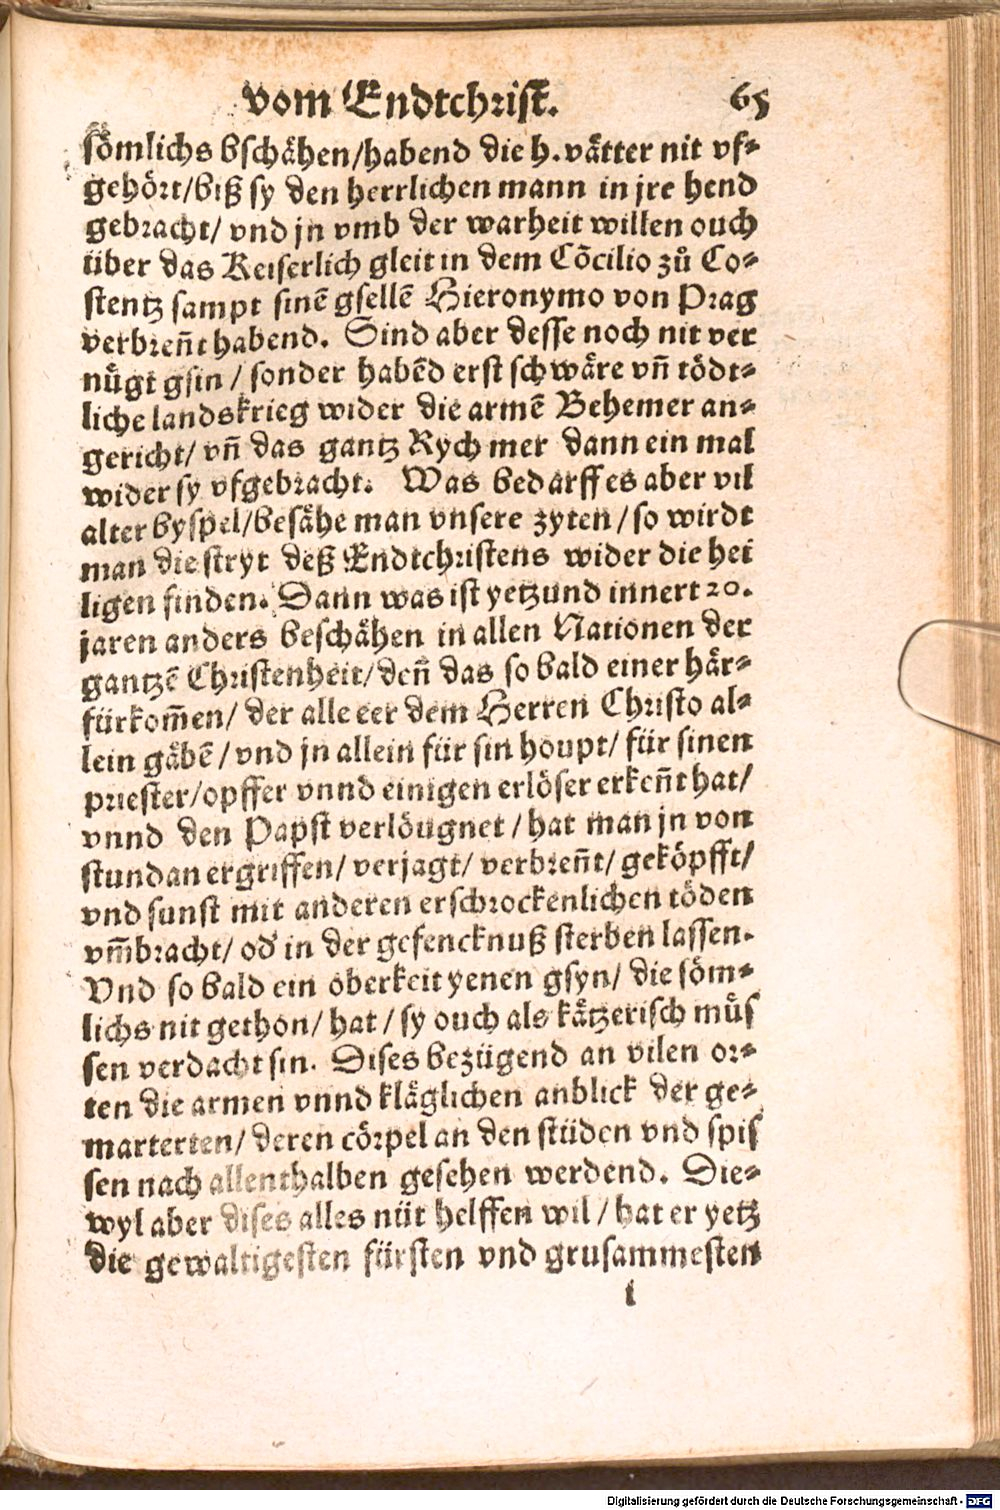 vom Endtchrist. 65
sömlichs bschähen/habend die h. vätter nit vf⸗
gehört/biß sy den herrlichen mann in jre hend
gebracht/ vnd jn vmb der warheit willen ouch
über das Keiserlich gleit in dem Cōcilio zů Co⸗
stentz sampt sinē gsellē Hieronymo von Prag
verbreñt habend. Sind aber desse noch nit ver
nůgt gsin / sonder habēd erst schwäre vñ tödt⸗
liche landskrieg wider die armē Behemer an⸗
gericht/ vñ das gantz Rych mer dann ein mal
wider sy vfgebracht. Was bedarff es aber vil
alter byspel/besähe man vnsere zyten / so wirdt
man die stryt deß Endtchristens wider die hei
ligen finden. Dann was ist yetzund innert 20.
jaren anders beschähen in allen Nationen der
gantzē Christenheit/ deñ das so bald einer här⸗
fürkom̄en/ der alle eer dem Herren Christo al⸗
lein gäbē / vnd jn allein für sin houpt/ für sinen
priester/opffer vnnd einigen erlöser erkeñt hat/
vnnd den Papst verlöugnet / hat man jn von
stund an ergriffen/ verjagt/ verbreñt/ geköpfft/
vnd sunst mit anderen erschrockenlichen töden
vm̄bracht/ od' in der gefencknuß sterben lassen.
Vnd so bald ein oberkeit yenen gsyn/ die söm⸗
lichs nit gethon/ hat / sy ouch als kätzerisch můs
sen verdacht sin. Dises bezügend an vilen or⸗
ten die armen vnnd kläglichen anblick der ge⸗
marterten/ deren cörpel an den stüden vnd spis
sen nach allenthalben gesehen werdend. Die⸗
wyl aber dises alles nüt helffen wil / hat er yetz
die gewaltigesten fürsten vnd grusammesten
i
Digitalisierung gefördert durch die Deutsche Forschungsgemeinschaft - DFG